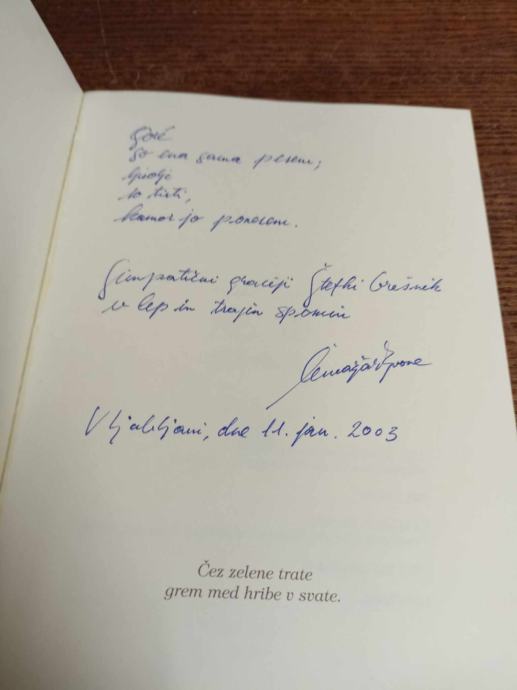 Gore
so ena sama pesem;
ljudje
so tisti,
kamor jo ponesem.
Simpatični graciji Štefki Grešnik
v lep in trajen spomin
V Ljubljani, dne 11. jan. 2003
Čez zelene trate
grem med hribe v svate.